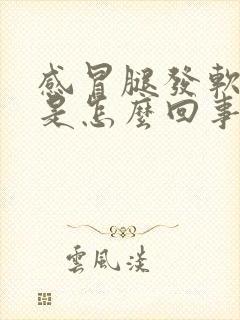 感冒腿發軟
是怎麼回事
雲風淡